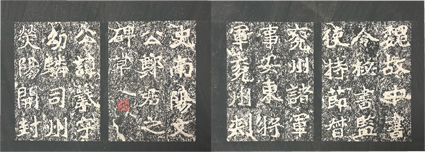 魏故中書
令秘書監
使持節督
兗州諸軍
事安東將
軍兗州刺
史南陽文
公鄭君之
碑草
公諱羲字
幼麟司州
熒陽開封